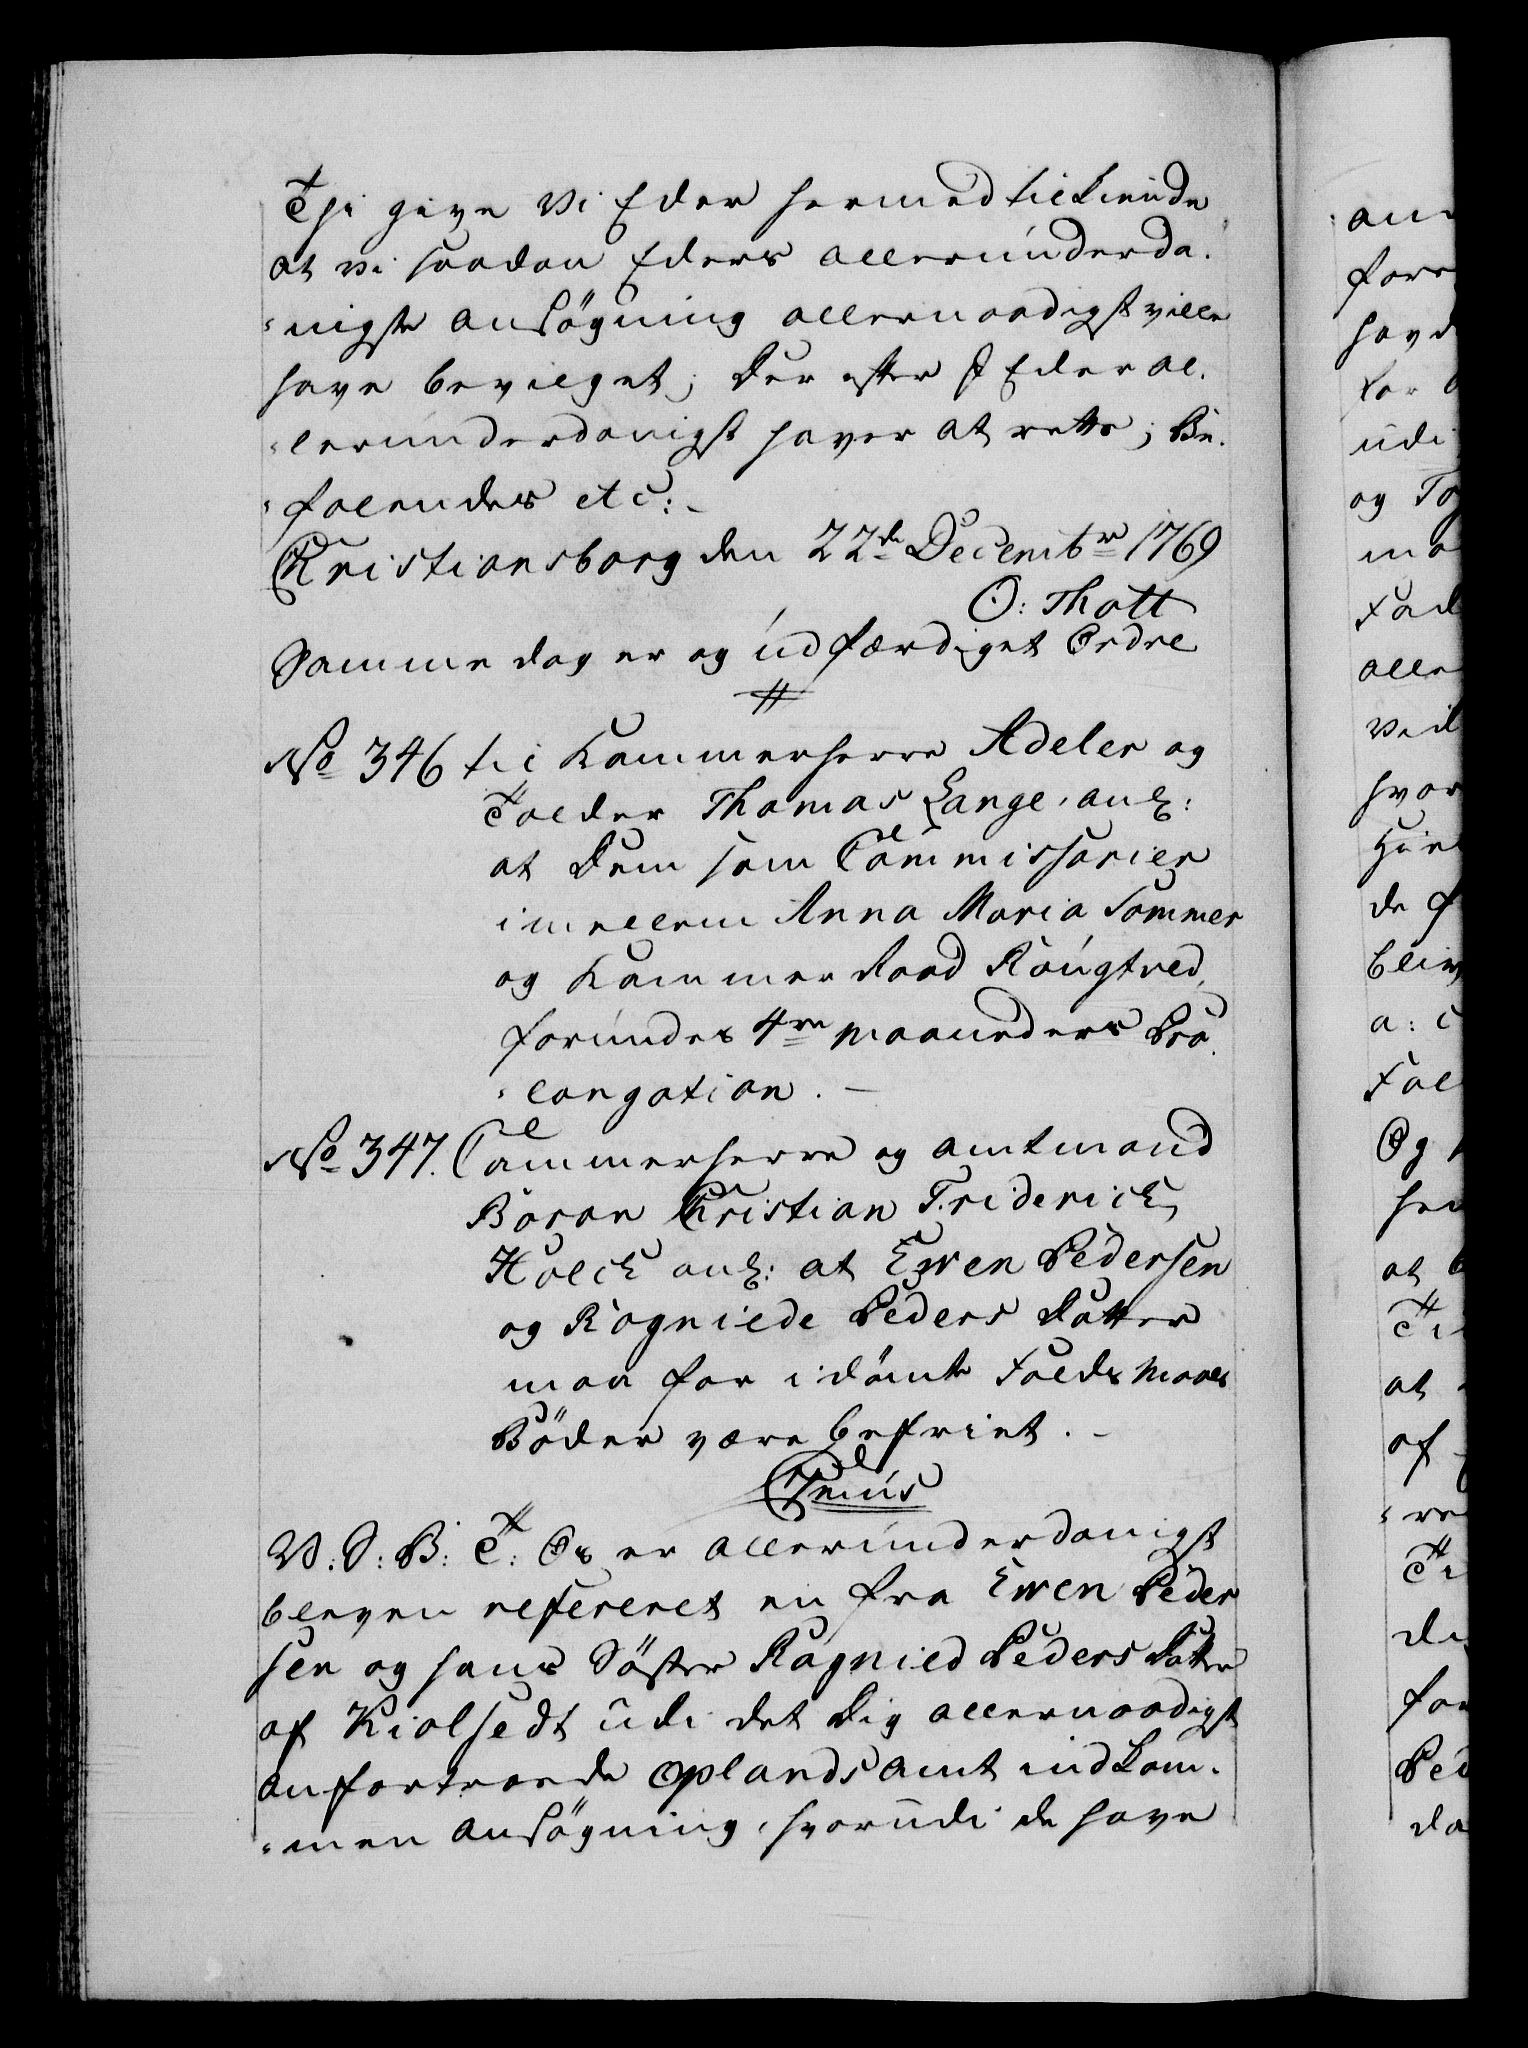 Thi give Vi Eder hermed tilkiende
at vi saadan Eders allerunderda-
-nigste Ansögning allernaadigst ville
have bevilget; Der efter I Eder al-
-lerunderdanigst haver at rette; Be-
-falendes etc:
Christiansborg den 22de Decembr 1769
O: Thott
Samme dag er og udfærdiget Ordre
No 346 til Kammerherre Adeler og
Tolder Thomas Lange, anl:
at Dem som Commissarier
imellem Anna Maria Sommer
og Kammer Raad Rougtved,
forundes 4re Maaneders Pro-
-longation.
No 347. Cammerherre og Amtmand
Baron Christian Friderich
Holck anl: at Ewen Pedersen
og Ragniede Peders Datter
maa for idömte Leiermaals
Böder være befriet.
Genius
V. S: B: T: Os er allerunderdanigst
bleven refereret en fra Ewen Peder
sen og hans Söster Ragnied Peders Datter
af Kiolsedt udi det Dig allernaadigst
anfortroede Oplands Amt indkom-
-men Ansögning, hvorudi de have